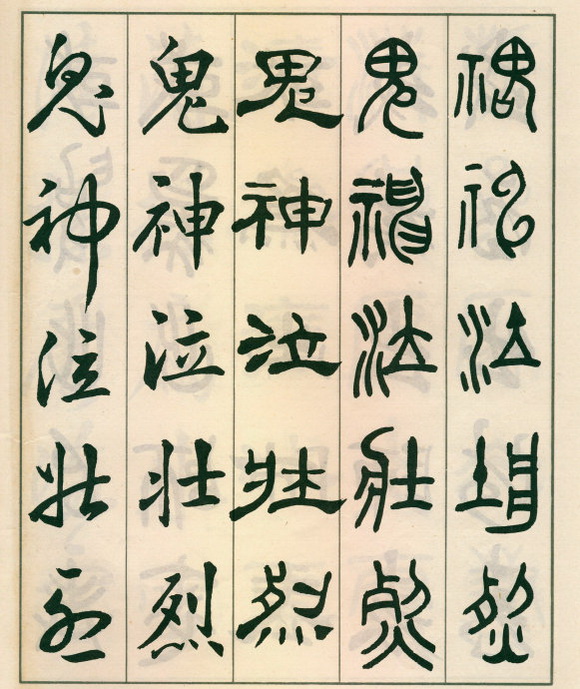 鬼神泣壯烈
鬼神泣壯烈
鬼神泣壯烈
鬼神泣壯烈
鬼神泣壯烈